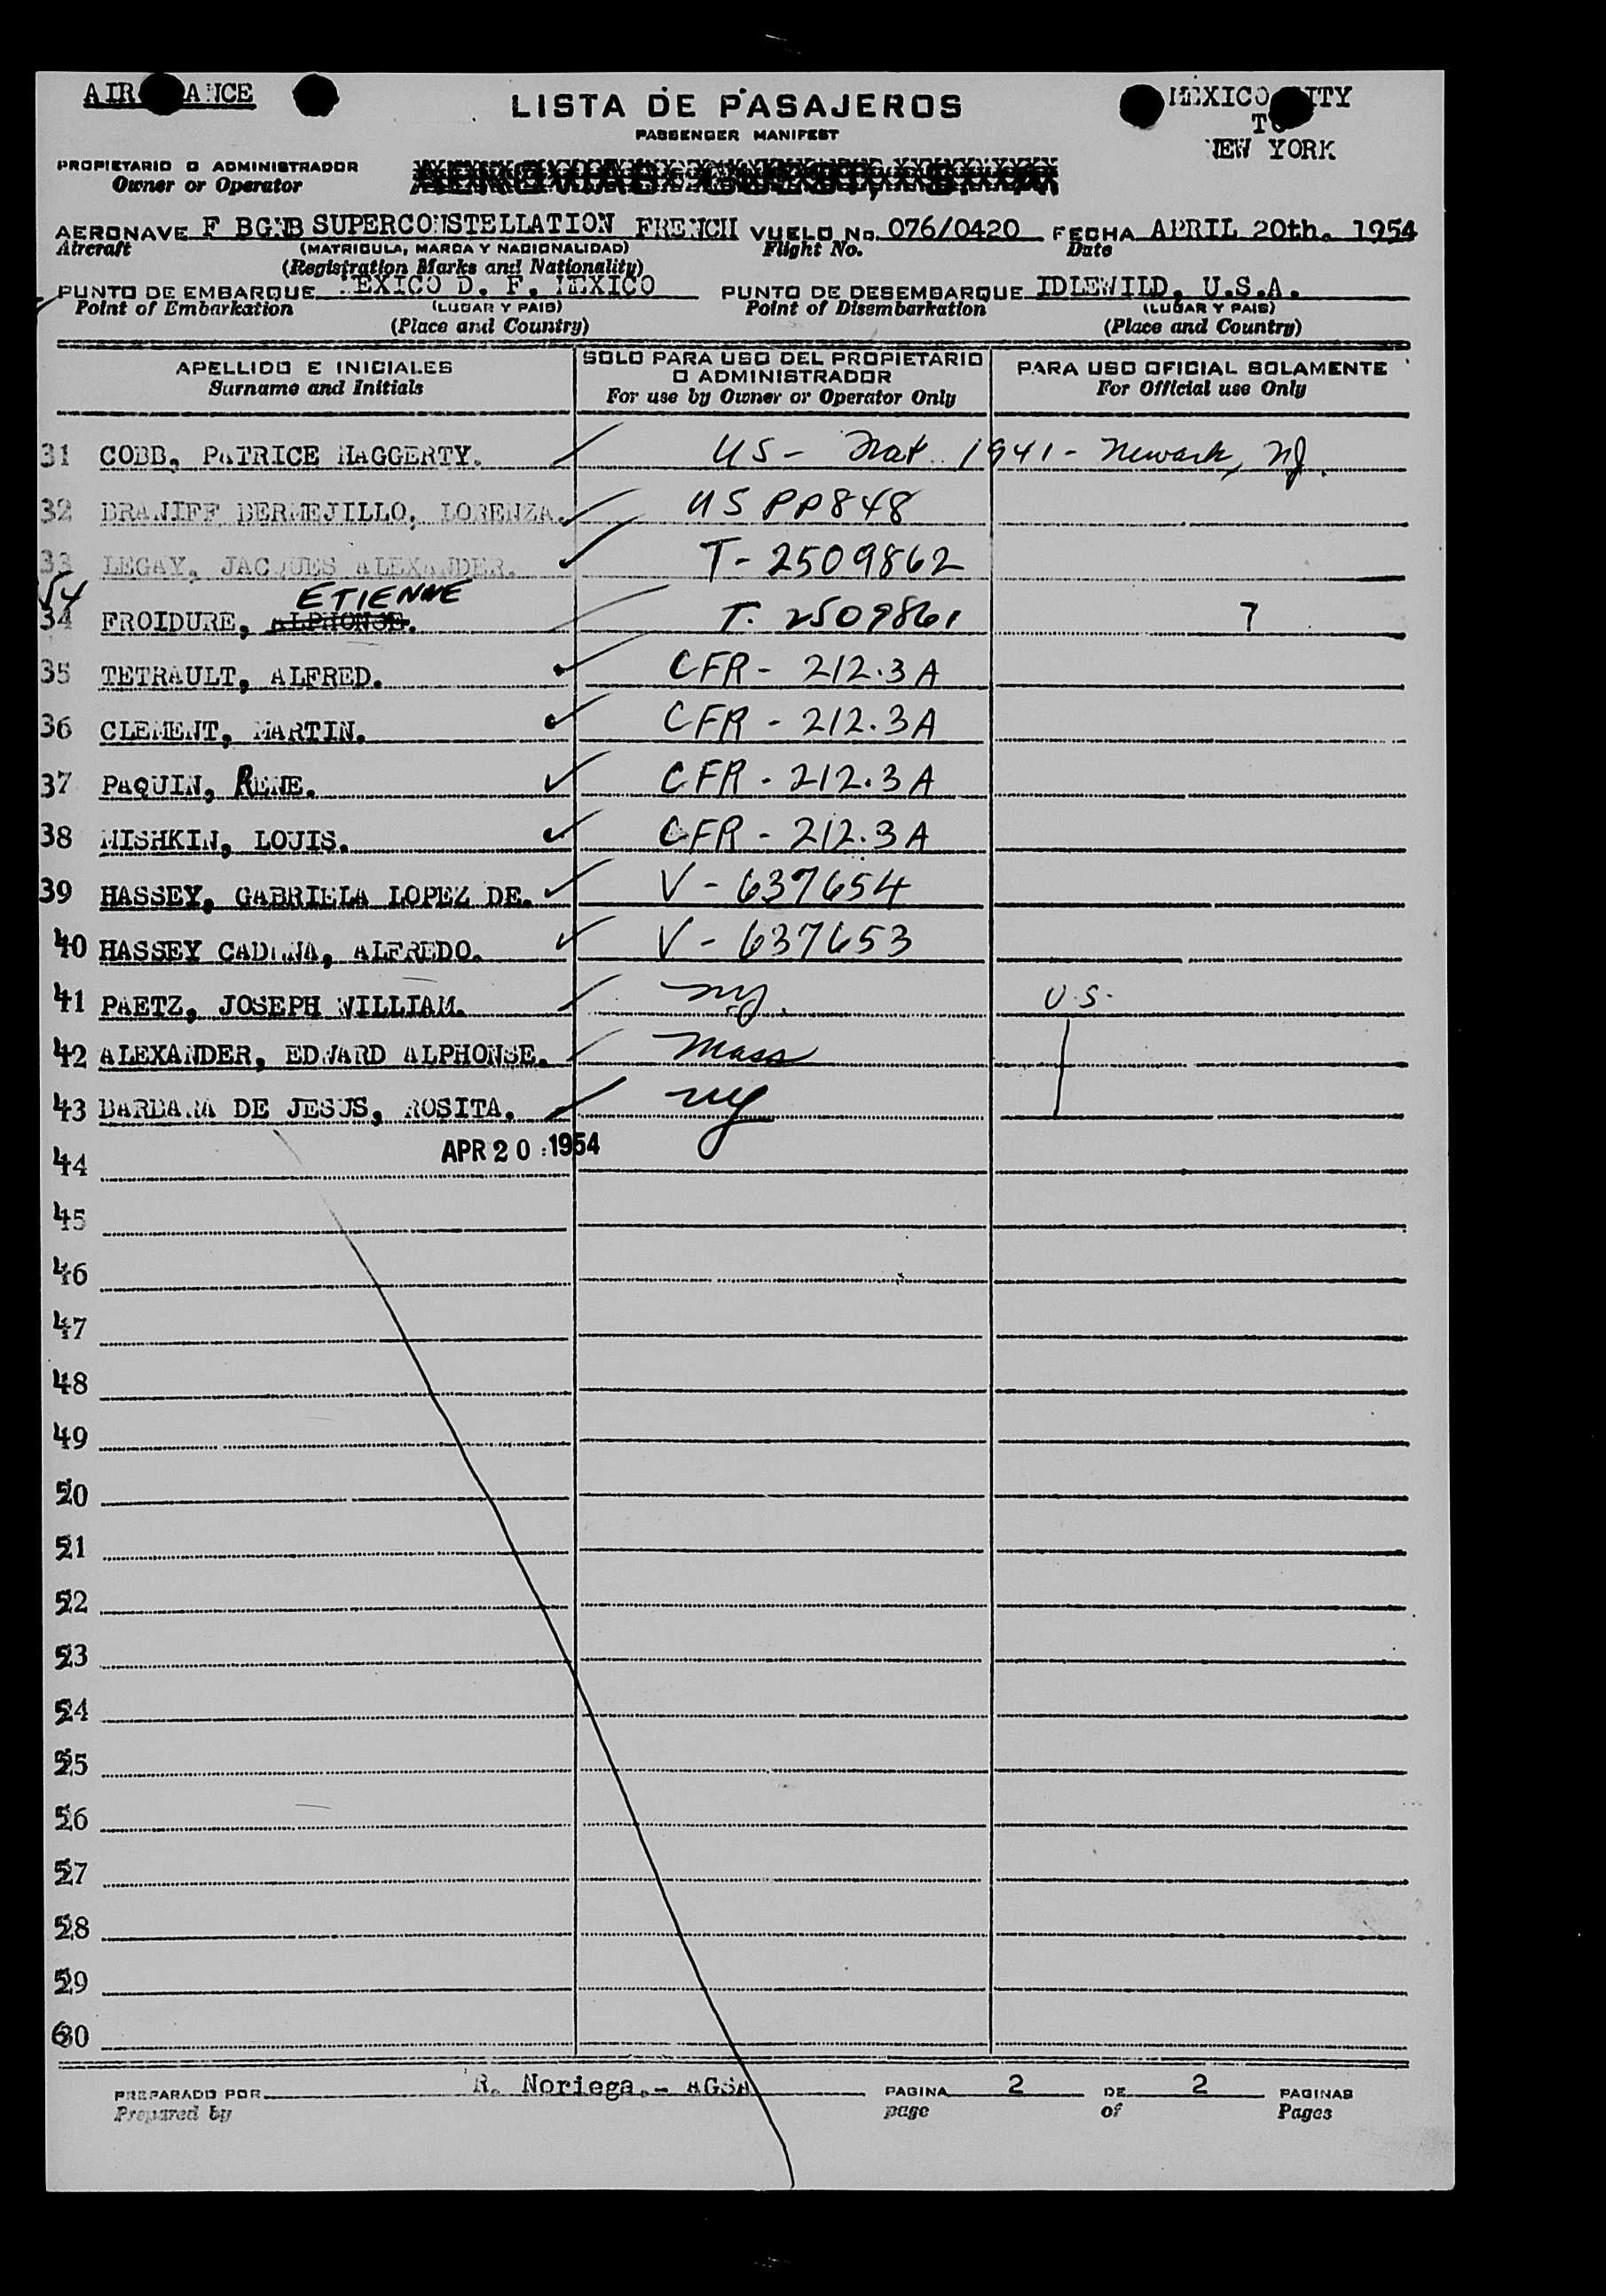 AIR ANCE
LISTA DE PASAJEROS
PASSENGER MANIFEST
MEXICO ITY
TO
NEW YORK
PROPIETARIO O ADMINISTRADOR
Owner or Operator
AERONAVE F BGNB SUPERCONSTELLATION FRENCH VUELO No. 076/0420 FECHA APRIL 20th. 1954
Aircraft (MATRICULA, MARCA Y NACIONALIDAD) Flight No. Date
(Registration Marks and Nationality)
PUNTO DE EMBARQUE MEXICO D. F. MEXICO PUNTO DE DESEMBARQUE IDLEWILD, U.S.A.
Point of Embarkation (LUGAR Y PAIS) Point of Disembarkation (LUGAR Y PAIS)
(Place and Country) (Place and Country)
APELLIDO E INICIALES SOLO PARA USO DEL PROPIETARIO O ADMINISTRADOR PARA USO OFICIAL SOLAMENTE
Surname and Initials For use by Owner or Operator Only For Official use Only
31 COBB, PATRICE HAGGERTY. US - Nat. 1941 - Newark, NJ.
32 BRANIFF BERMEJILLO, LORENZA. US PP848
33 LEGAY, JACQUES ALEXANDER. T - 2509862
54 ETIENNE
34 FROIDURE, ALPHONSE. T. 2509861 7
35 TETRAULT, ALFRED. CFR - 212.3A
36 CLEMENT, MARTIN. CFR - 212.3A
37 PAQUIN, RENE. CFR - 212.3A
38 MISHKIN, LOUIS. CFR - 212.3A
39 HASSEY, GABRIELA LOPEZ DE. V - 637654
40 HASSEY CADENA, ALFREDO. V - 637653
41 PAETZ, JOSEPH WILLIAM. ny. U.S.
42 ALEXANDER, EDWARD ALPHONSE. Mass
43 BARBARA DE JESUS, ROSITA. ny
APR 20 1954
44
45
46
47
48
49
50
51
52
53
54
55
56
57
58
59
60
PREPARADO POR R. Noriega.- AGSA PAGINA 2 DE 2 PAGINAS
Prepared by page of Pages